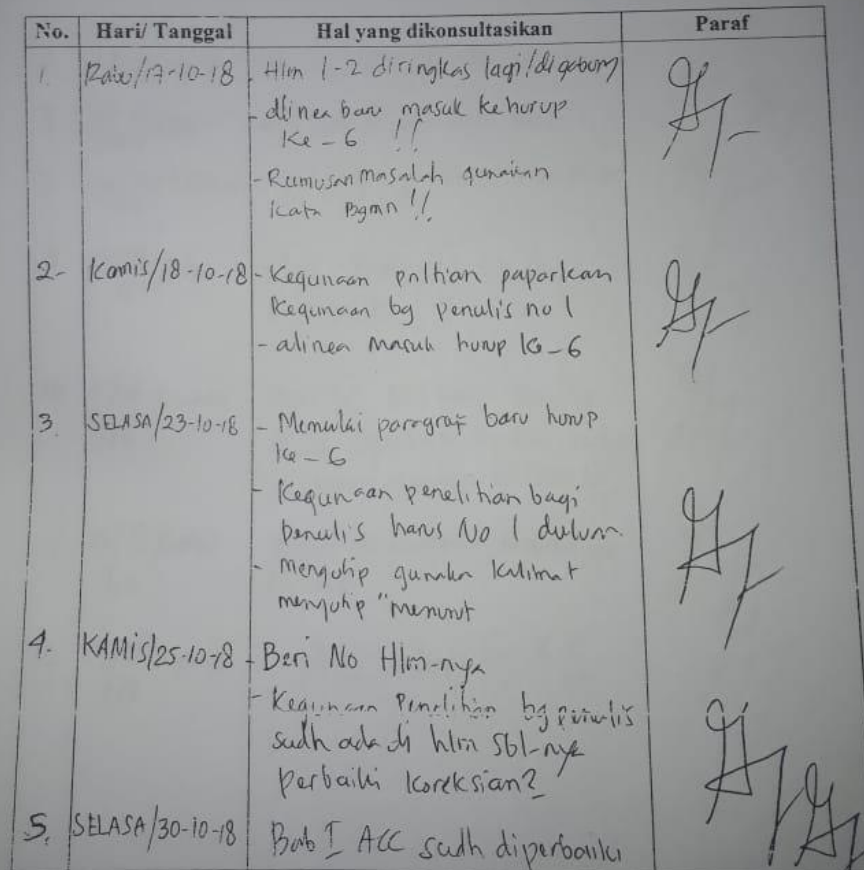 No. Hari/ Tanggal Hal yang dikonsultasikan Paraf
1. Rabu/17-10-18 - Hlm 1-2 diringkas lagi/digabung
- Alinea baru masuk ke hurup
Ke-6 !!
- Rumusan masalah gunakan
kata Bgmn !!
2- Kamis/18-10-18 - Kegunaan pnltian paparkan
kegunaan bg penulis no 1
- alinea masuk hurup ke-6
3. SELASA/23-10-18 - Memulai paragraf baru hurup
ke-6
- Kegunaan penelitian bagi
penulis harus No 1 dulum
- mengutip gunakan kalimat
mengutip "menurut
4. KAMIS/25-10-18 - Beri No Hlm-nya
- Kegunaan Penelitian bg penulis
sudh ada di hlm sbl-nya
perbaiki koreksian2
5. SELASA/30-10-18 Bab I ACC sudh diperbaiki